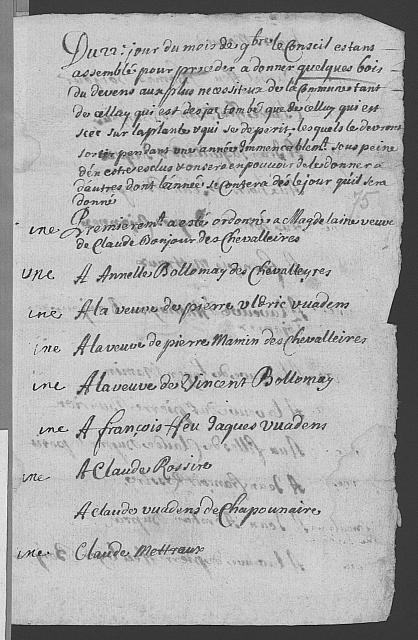 Du 22: jour du mois de 9bre le Conseil estans
assemblé pour proceder a donner quelques bois
du devens aux plus necessiteux de la Commune tant
de cellay qui est desja tombé que de celluy qui est
scée sur la plante & qui se deperit, lesquels le devront
sortir pendant une année immencablemt. sous peine
d'en estre esclus & on sera en pouvoir de les donner a
d'autres dont l'année se contera dés le jour quil sera
donné
ine Premieremt. a esté ordonné a Magdelaine veuve
de Claude Bonjour des Chevalleires
une A Annelle Bollomay des Chevalleyres
ine A la veuve de pierre vleric vuadens
ine A la veuve de pierre Mamin des Chevalleires
ine A la veuve de Vincent Bollomay
ine A françois ffeu Jaques vuadens
ine A Claude Rossire
A claude vuadens de Chapounaire
ine Claude Mettraux